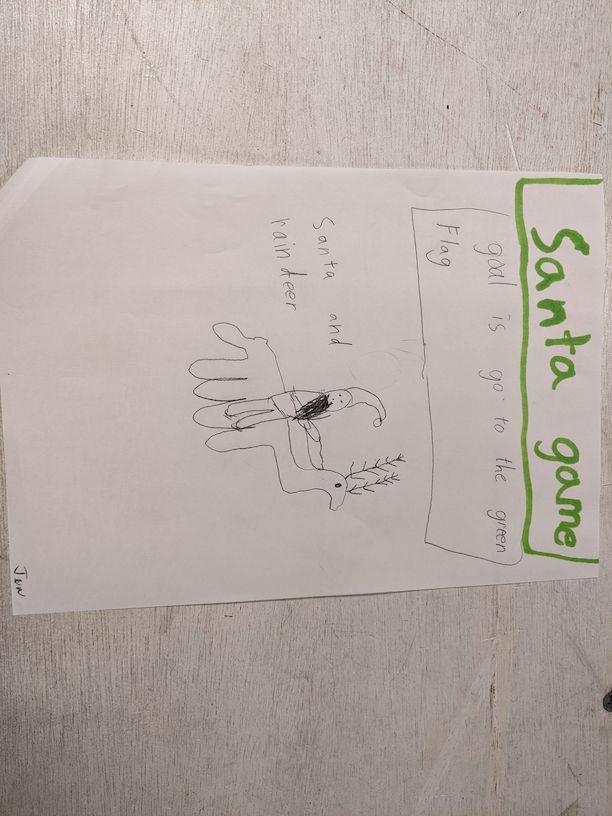 Santa game
goal is go to the green
Flag
Santa and
raindeer
Jun